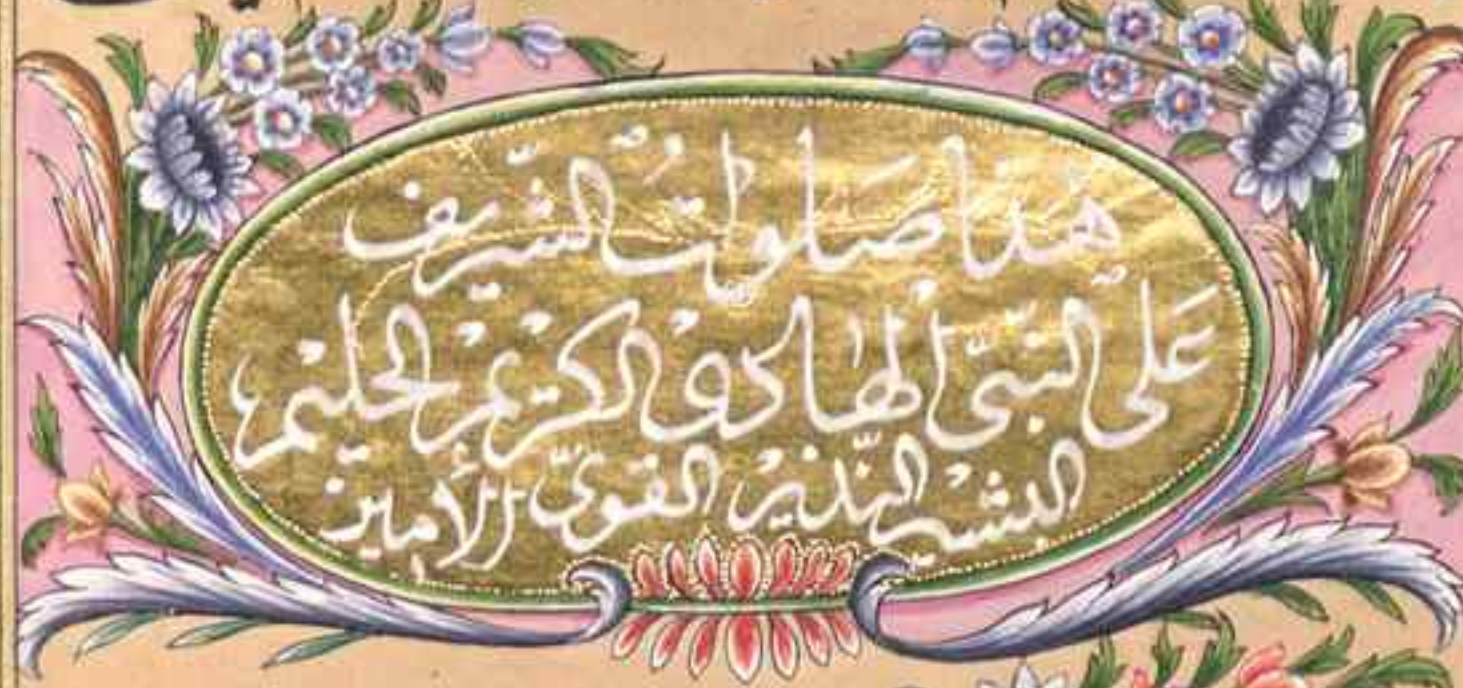 هذا صَلواتُ الشَّريف
عَلى النبىّ الهادى الكريم الحليم
البشير النّذير القوىّ الأمين